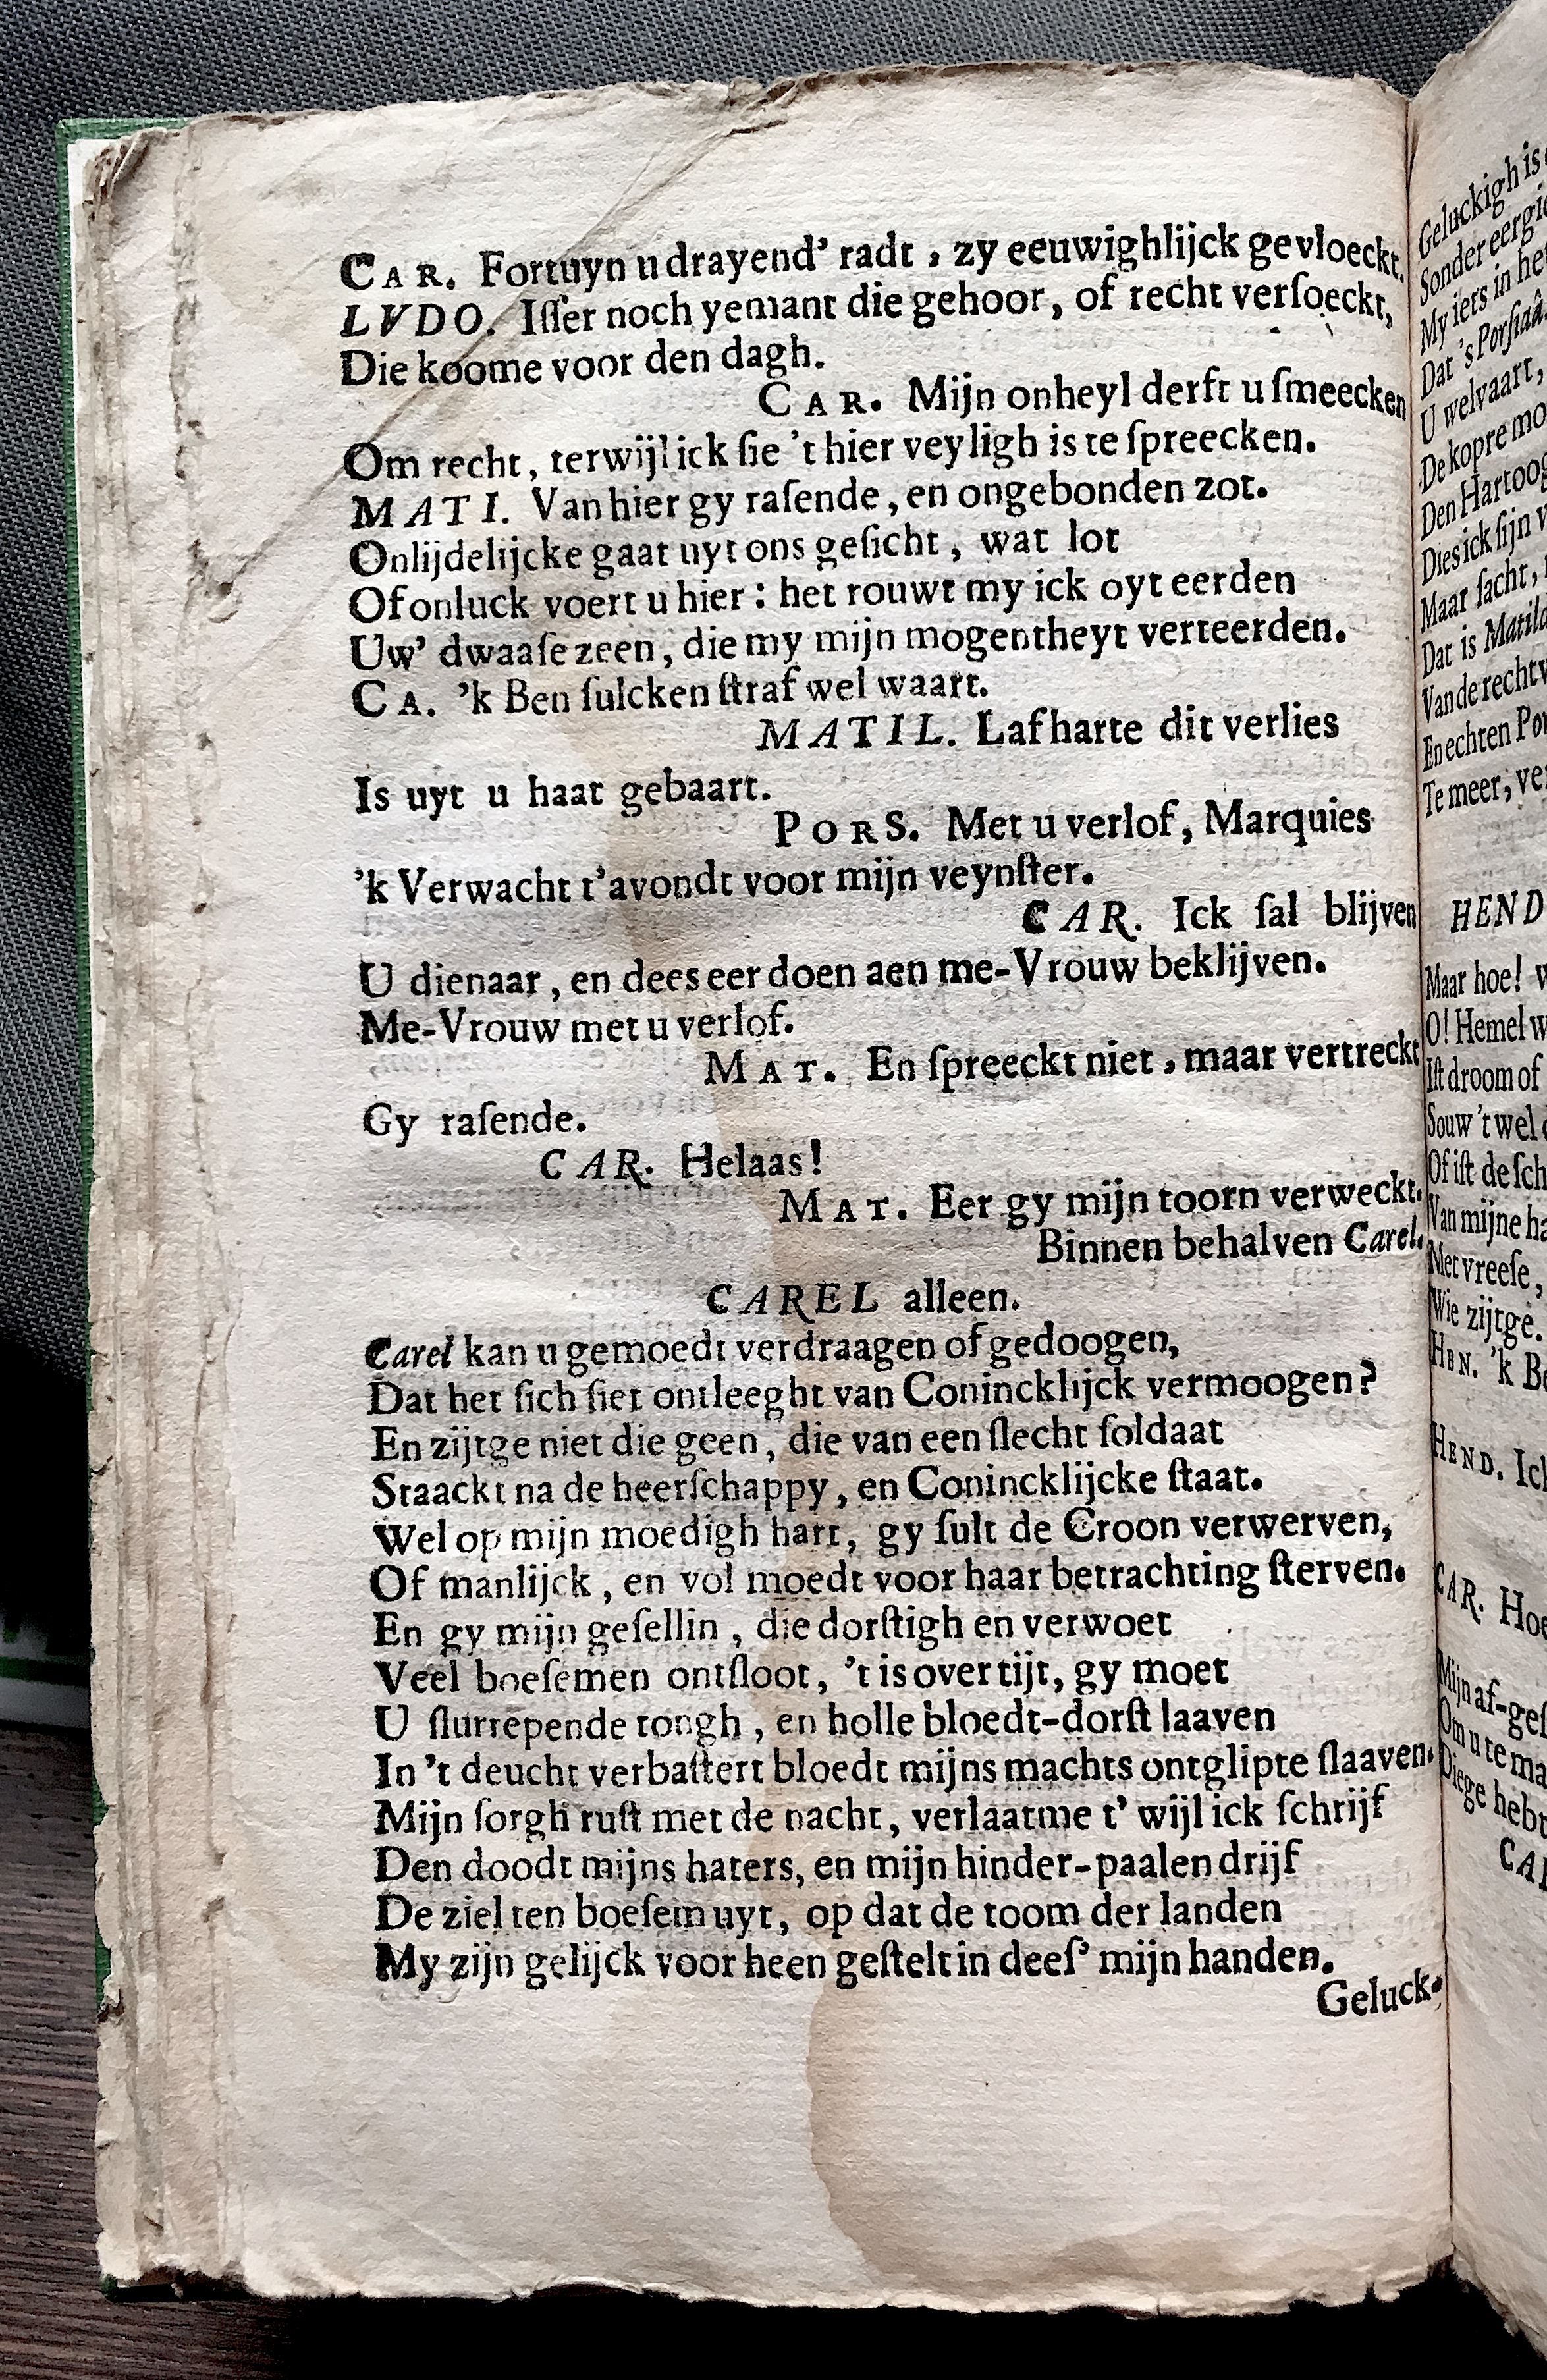 CAR. Fortuyn u drayend' radt, zy eeuwighlijck gevloeckt.
LVDO. Iſſer noch yemant die gehoor, of recht verſoeckt,
Die koome voor den dagh.
CAR. Mijn onheyl derft u ſmeecken
Om recht, terwijl ick ſie 't hier veyligh is te ſpreecken.
MATI. Van hier gy raſende, en ongebonden zot.
Onlijdelijcke gaat uyt ons geſicht, wat lot
Of onluck voert u hier: het rouwt my ick oyt eerden
Uw' dwaaſe zeen, die my mijn mogentheyt verteerden.
CA. 'k Ben ſulcken ſtraf wel waart.
MATIL. Lafharte dit verlies
Is uyt u haat gebaart.
PORS. Met u verlof, Marquies
'k Verwacht t'avondt voor mijn veynſter.
CAR. Ick ſal blijven
U dienaar, en dees eer doen aen me-Vrouw beklijven.
Me-Vrouw met u verlof.
MAT. En ſpreeckt niet, maar vertreckt
Gy raſende.
CAR. Helaas!
MAT. Eer gy mijn toorn verweckt.
Binnen behalven Carel.
CAREL alleen.
Carel kan u gemoedt verdraagen of gedoogen,
Dat het ſich ſiet ontleeght van Conincklijck vermoogen?
En zijtge niet die geen, die van een ſlecht ſoldaat
Staackt na de heerſchappy, en Conincklijcke ſtaat.
Wel op mijn moedigh hart, gy ſult de Croon verwerven,
Of manlijck, en vol moedt voor haar betrachting ſterven.
En gy mijn geſellin, die dorſtigh en verwoet
Veel boeſemen ontſloot, 't is over tijt, gy moet
U ſlurrepende tongh, en holle bloedt-dorſt laaven
In 't deucht verbaſtert bloedt mijns machts ontglipte ſlaaven.
Mijn ſorgh ruſt met de nacht, verlaatme t' wijl ick ſchrijf
Den doodt mijns haters, en mijn hinder-paalen drijf
De ziel ten boeſem uyt, op dat de toom der landen
My zijn gelijck voor heen geſtelt in deeſ' mijn handen.
Geluck-
Geluckigh is
Sonder eergi
My iets in het
Dat 's Porſiaâ
U welvaart,
De kopre mo
Den Hartoog
Dies ick ſijn v
Maar ſacht,
Dat is Matild
Van de rechtv
En echten Por
Te meer, ver
HEND
Maar hoe! w
O! Hemel w
Iſt droom of
Souw 't wel
Of iſt de ſch
Van mijne ha
Met vreeſe,
Wie zijtge.
HEN. 'k Be
HEND. Ick
CAR. Hoe
Mijn af-geſ
Om u te ma
Die ge hebt
CAR